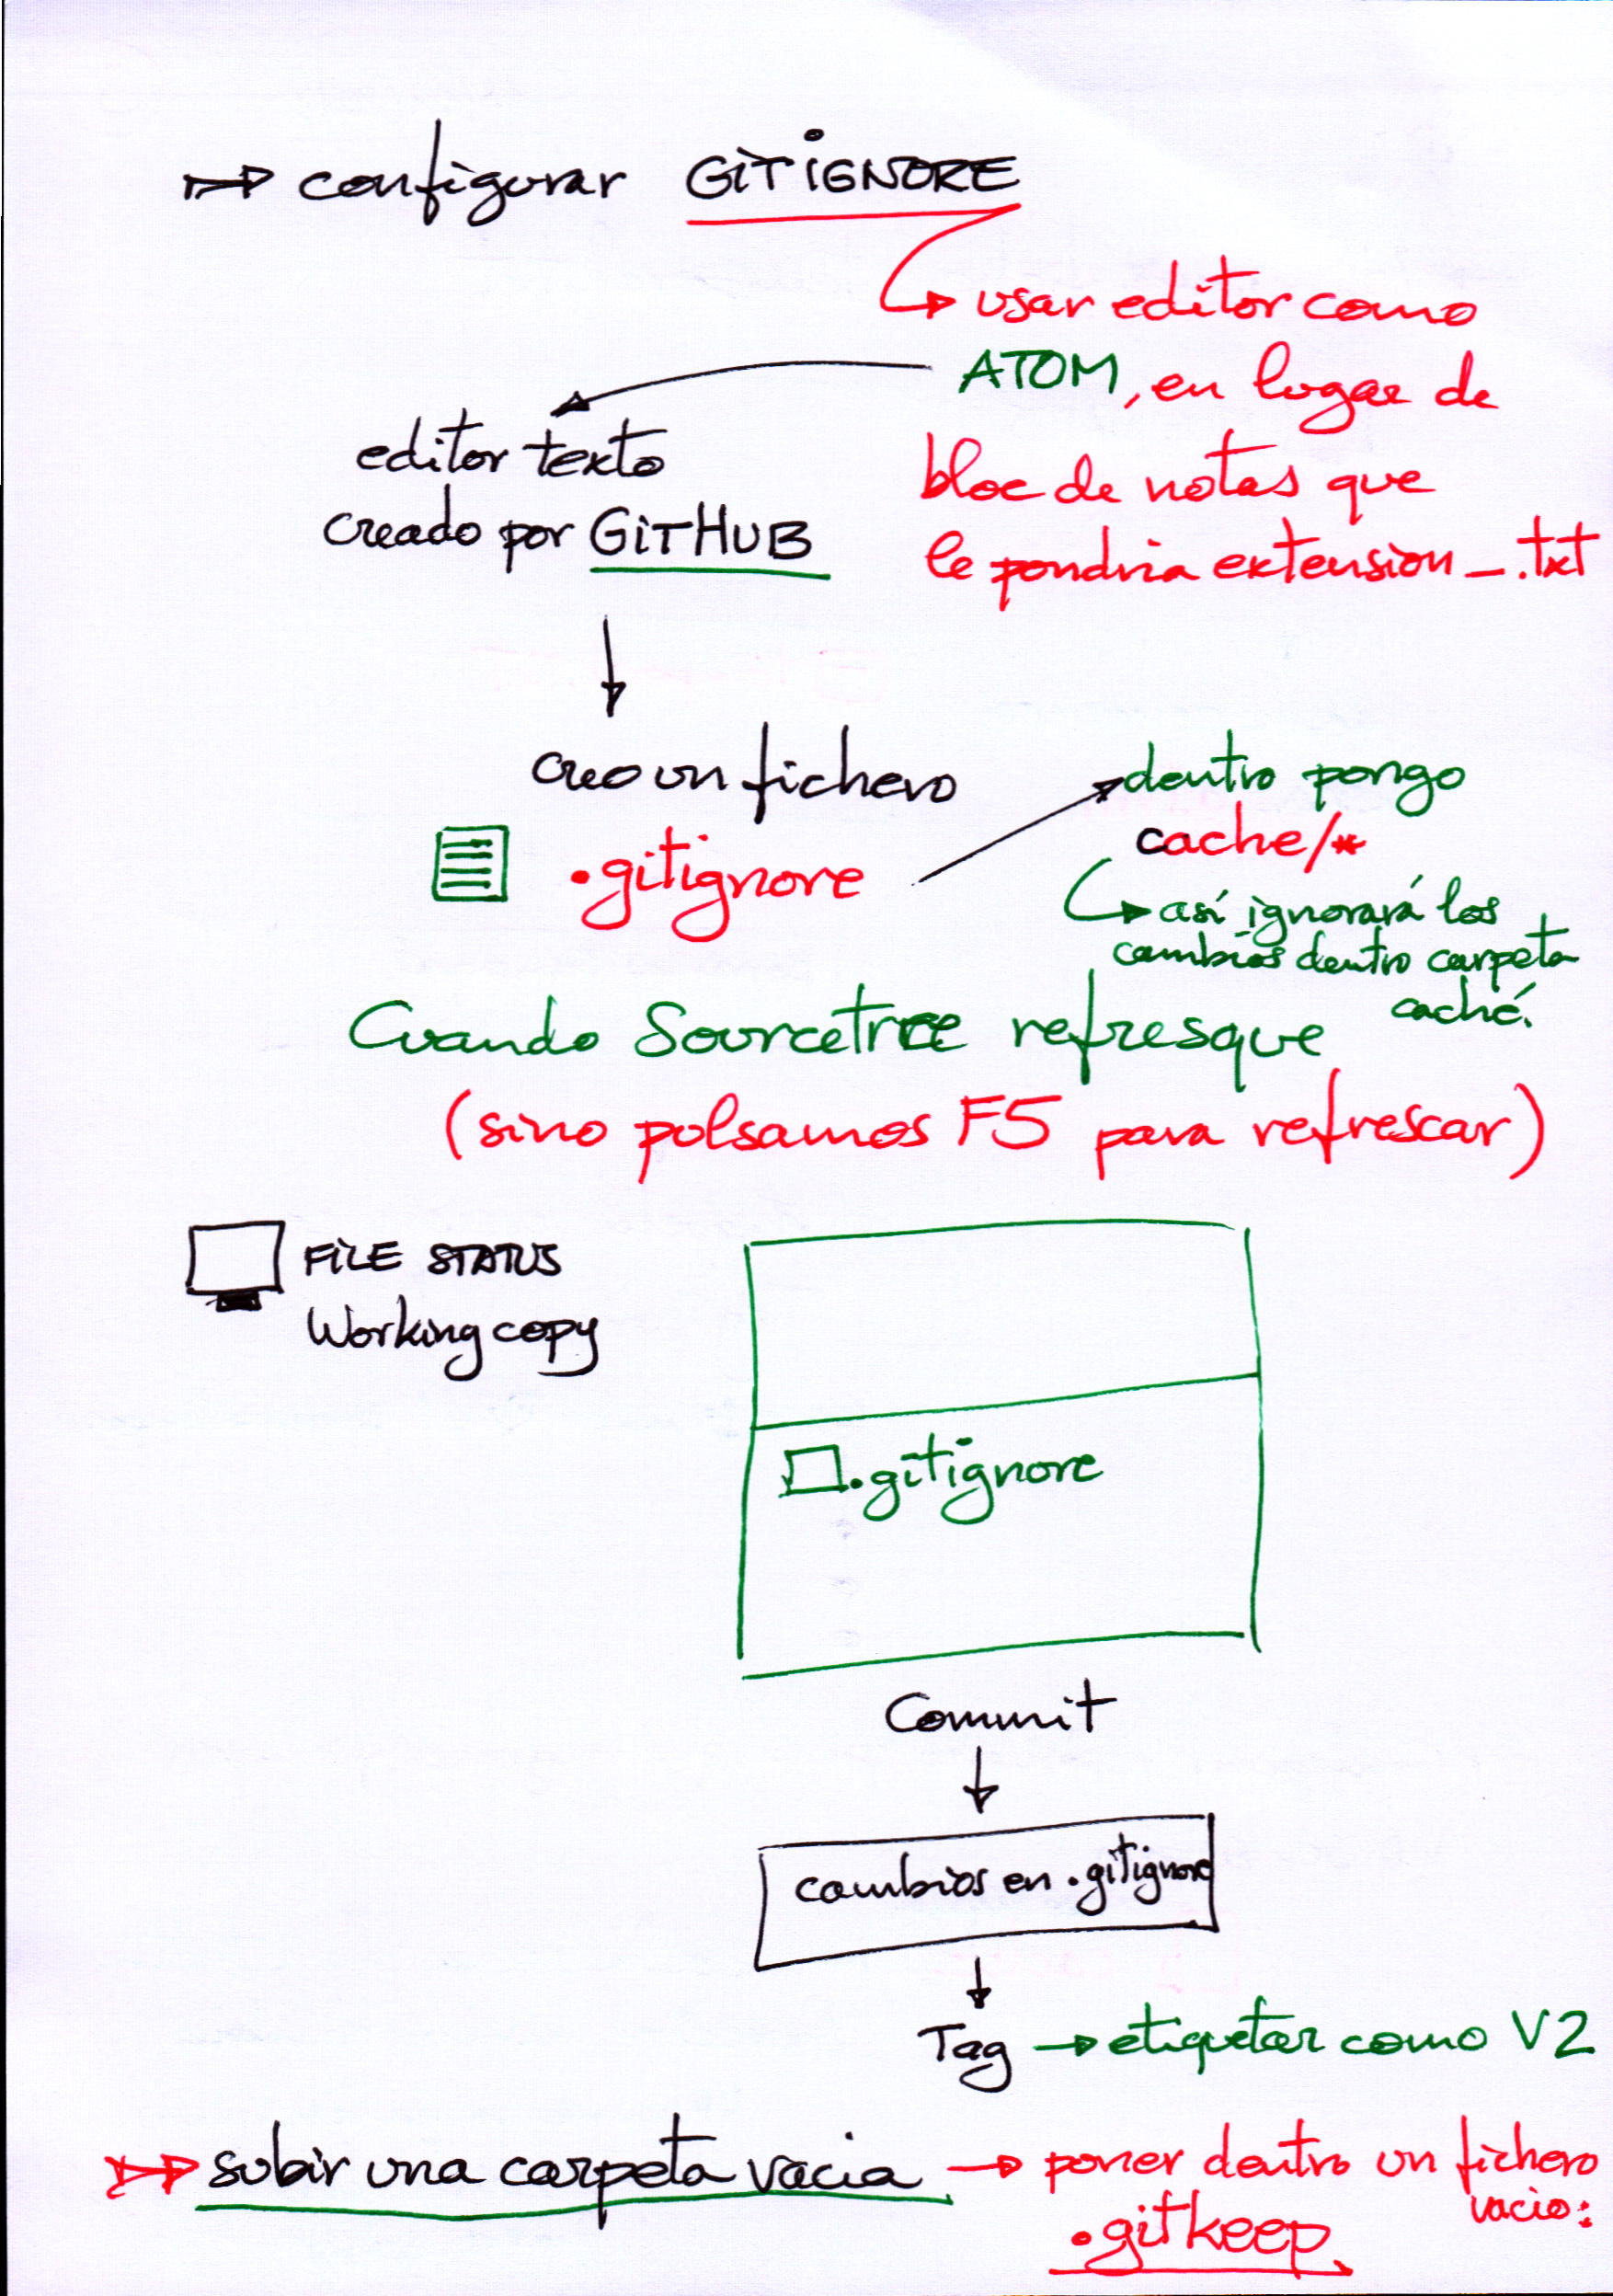 configurar GITIGNORE
usar editor como
ATOM, en lugar de
bloc de notas que
le pondria extension _.txt
editor texto
creado por GITHUB
creo un fichero
.gitignore
dentro pongo
cache/*
así ignorará los
cambios dentro carpeta
caché.
Cuando Sourcetree refresque
(sino pulsamos F5 para refrescar)
FILE STATUS
Working copy
.gitignore
Commit
cambios en .gitignore
Tag → etiquetar como V2
subir una carpeta vacia → poner dentro un fichero
vacio:
.gitkeep